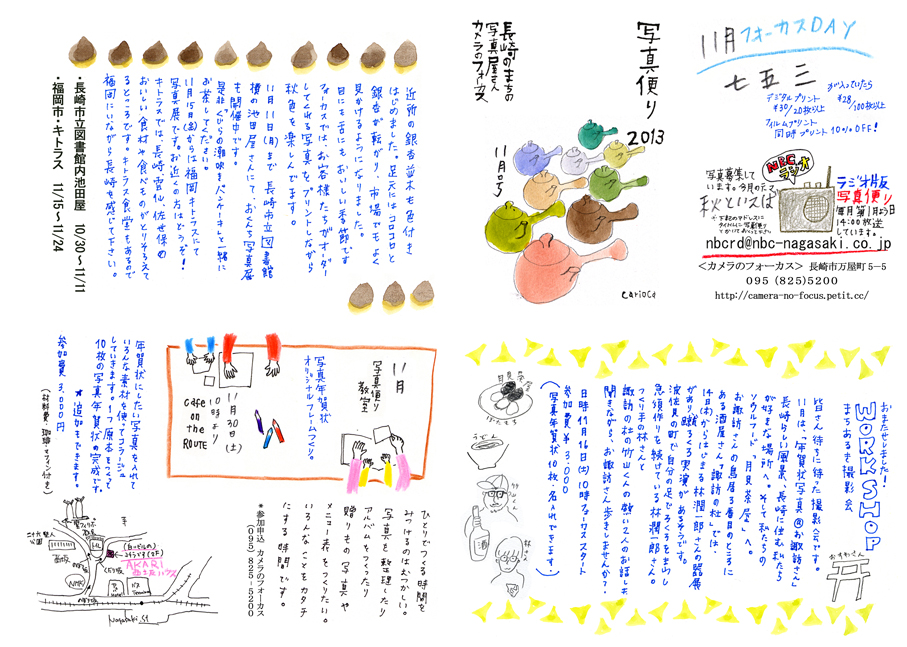 11月フォーカスDAY
七五三
¥28/100枚以上
デジタルプリント
¥30/20枚以上
フィルムプリント
同時プリント10%OFF!
写真便り
2013
11月号
長崎のまちの
写真屋さん
カメラのフォーカス
carioca
NBC
ラジオ
ラジオ片版
写真便り
14:00放送
しています。
写真募集して
います。今月のテーマ
秋といえば
nbcrd@nbc-nagasaki.co.jp
<カメラのフォーカス> 長崎市万屋町5−5
095 (825)5200
http://camera-no-focus.petit.cc/
近所の銀杏並木も色付き
はじめました。足元にはコロコロと
銀杏が転がり、市場でもよく
見かけるようになりました。
目にも舌にもおいしい季節です
フォーカスでは、お客様たちがオーダー
してくれる写真をプリントしながら
秋色を楽しんでます。
11月11日(月)まで 長崎市立図書館
横の池田屋さんにて、おくんち写真展
も開催中です。
是非くじらの潮吹きパンケーキと一緒に
お茶してください。
11月15日(金)からは福岡キトラスにて
写真展です。お近くの方はどうぞ!
キトラスでは、長崎、雲仙、佐世保の
おいしい食材や食べものがとりそろえて
るところです。キトラス食堂もあるので
福岡にいながら、長崎を感じて下さい。
・長崎市立図書館内池田屋 10/30〜11/11
・福岡市・キトラス 11/15〜11/24
おまたせしました!
WORKSHOP
まちあるき撮影会
皆さん待ちに待った撮影会です。
11月は、「年賀状写真@お諏訪さん」
長崎らしい風景、長崎に住む私たち
が好きな場所へ。そして私たちの
ソウルフード「月見茶屋」へ。
お諏訪さんの鳥居3番目のところに
ある酒屋さん「諏訪の杜」では、
14日(木)からはじまる林潤一郎さんの器展
波佐見の町で自分の足でどろを出し
急須作りを続けている林潤一郎さん。
つくり手の林さんと
諏訪の杜の竹山さんの熱い2人のお話しを
聞きながら、お諏訪さん歩きしませんか?
日時 11月16日(土) 10時フォーカススタート
参加費 ¥3,000
(写真年賀状10枚、名入れできます)
月見茶屋
ぼたもち
うどん
竹山くん
酒
林さん
おすわさん
11月
写真便り
教室
写真年賀状
オリジナルフレームつくり。
11月30日(土)
10時より
cafe
on
the
ROUTE
年賀状にしたい写真を入れて
いろんな素材を使ってコラージュ
していきます。1つ原本をつくって
10枚の写真年賀状の完成です。
★追加もできます。
参加費 3,000円
(材料費・珈琲・マフィン付き)
ひとりでつくる時間を
みつけるのはむつかしい。
写真を整理したり
アルバムをつくったり
贈りもの写真や
メニュー表をつくりたい。
いろんなことをカタチ
にする時間です。
*参加申込 カメラのフォーカス
(095)-825-5200
二十六聖人
公園
NHK
AKARI
Nagasaki.St